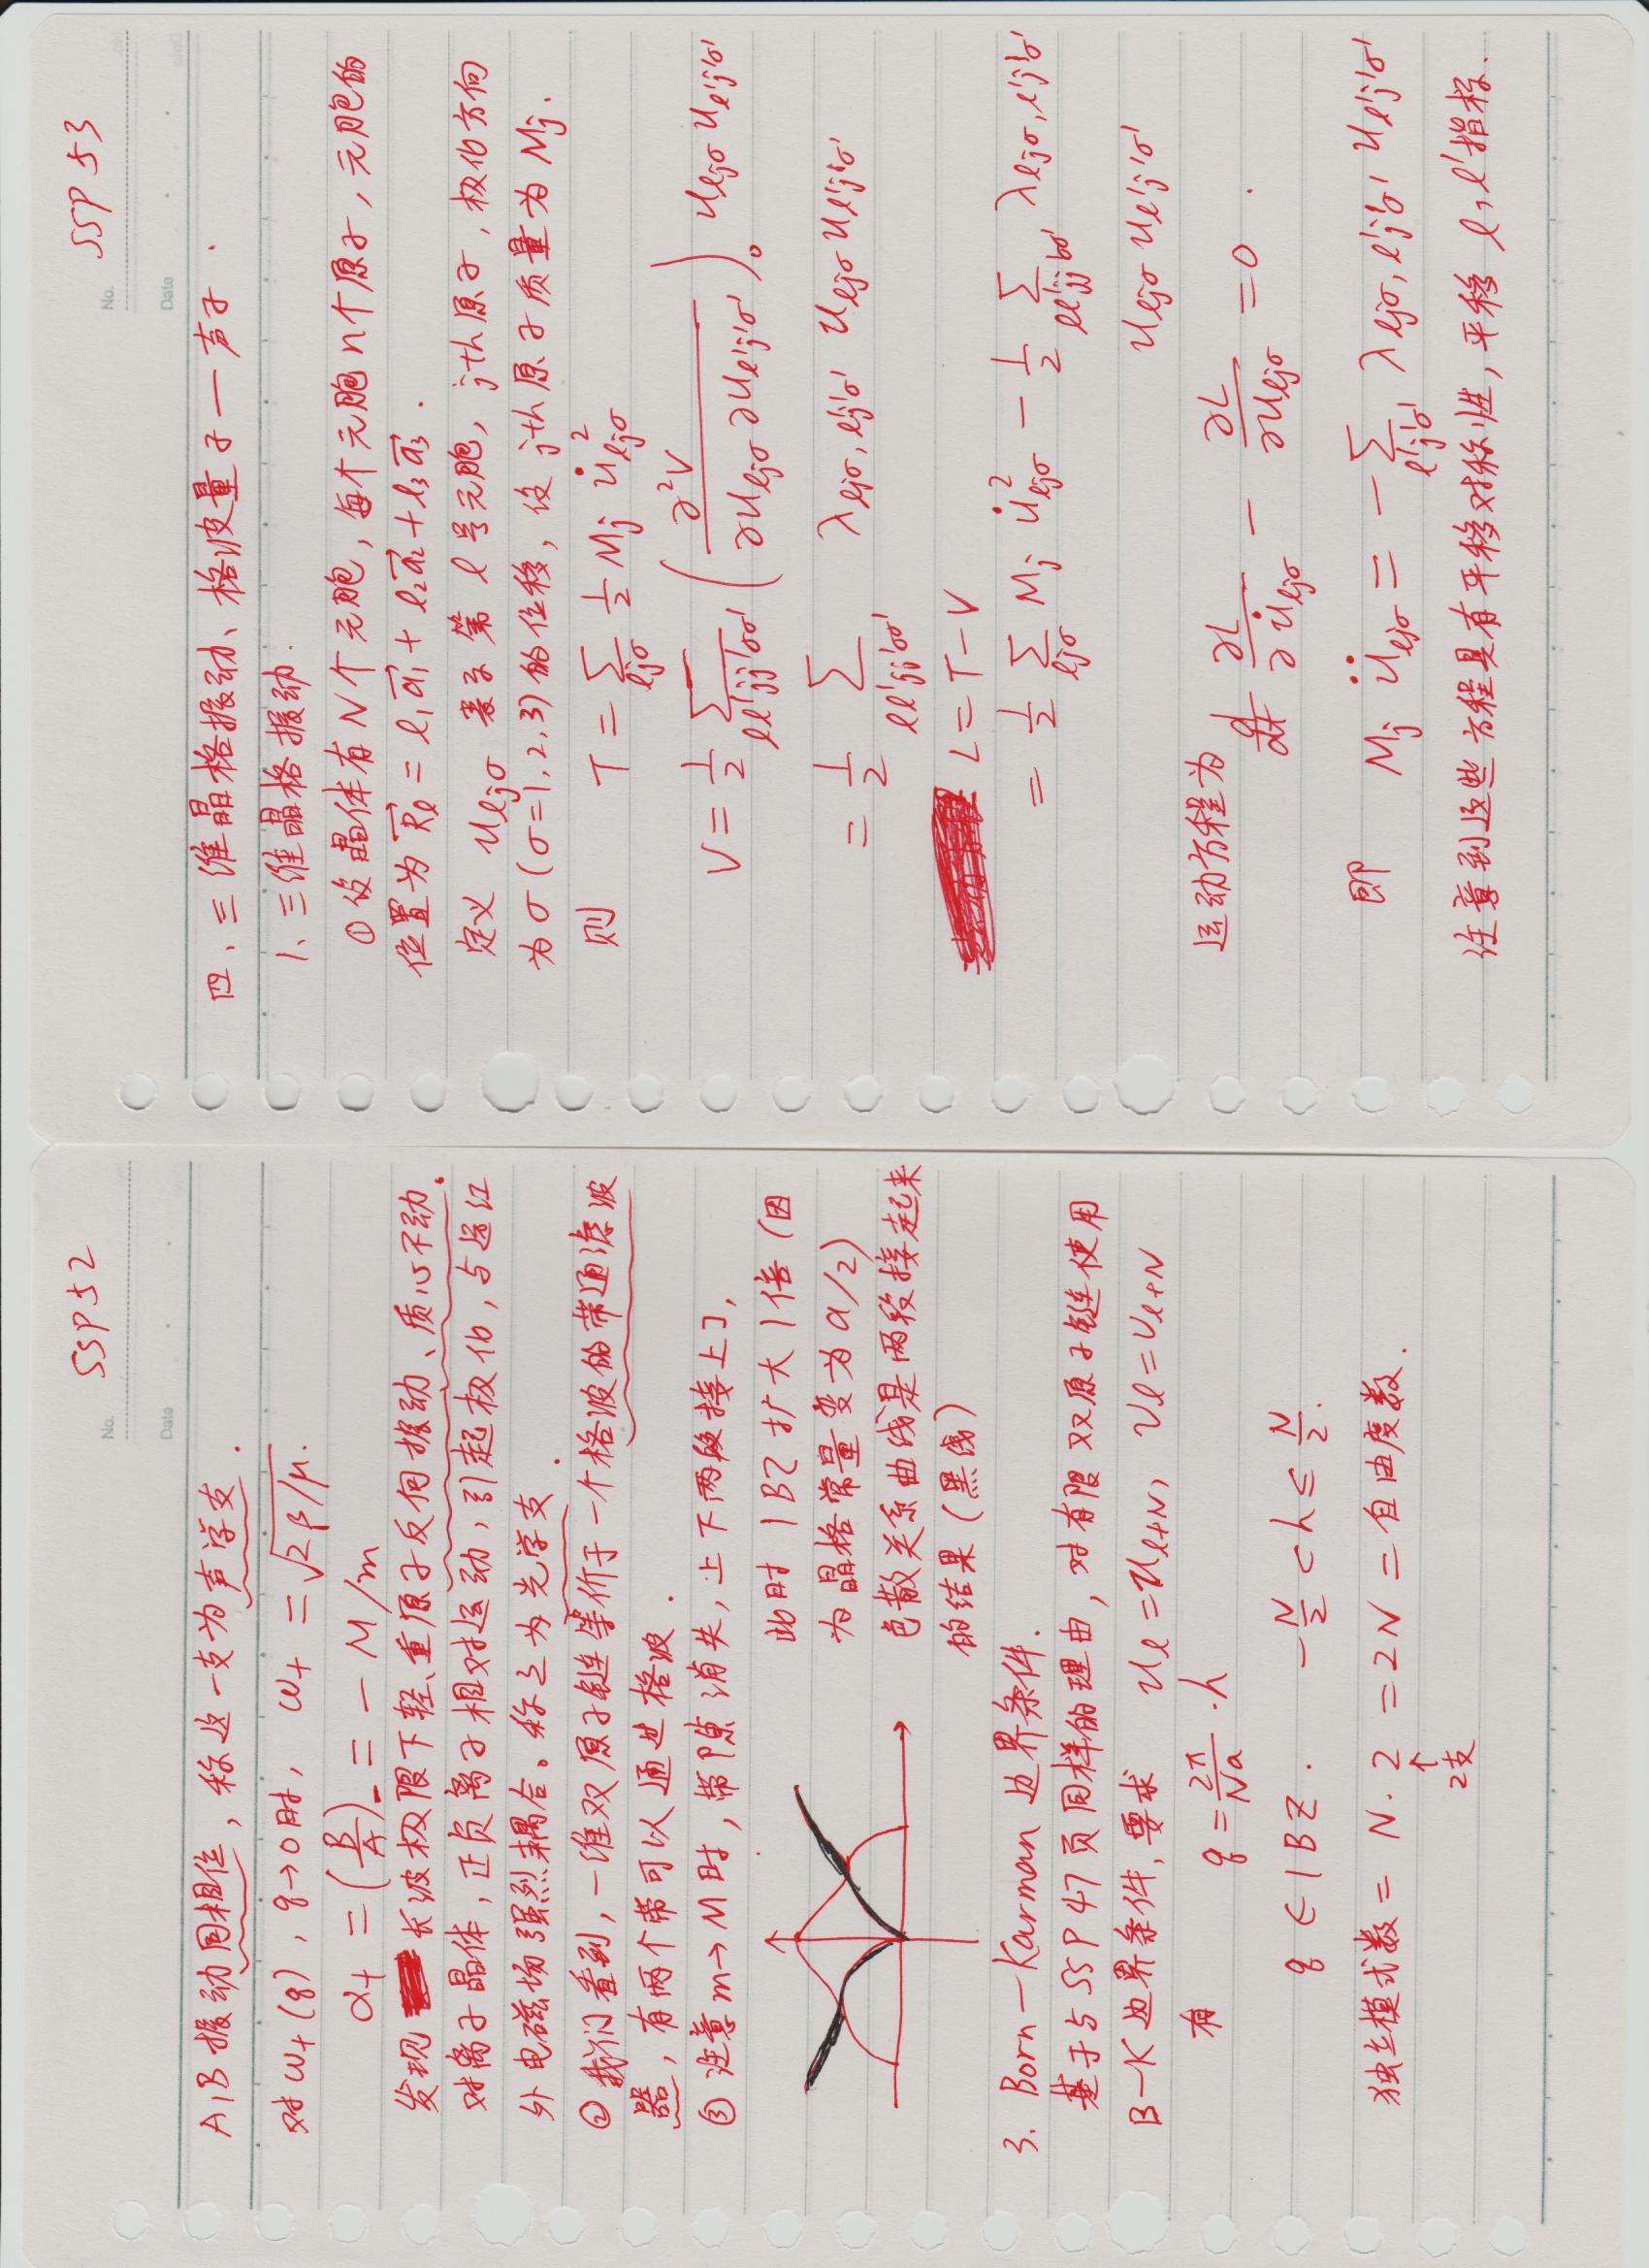 SSP 52
No.
Date
A,B振动同相位，称这一支为声学支．
对ω₊(q)，q→0时，ω₊ = √2β/μ．
α₊ = (B/A)₋ = − M/m
发现 长波极限下轻、重原子反向振动、质心不动．
对离子晶体，正负离子相对运动，引起极化，与远红
外电磁场强烈耦合。称之为光学支．
② 我们看到，一维双原子链等价于一个格波的带通滤波
器，有两个带可以通过格波．
③ 注意m→M时，带隙消失，上下两段接上了，
此时1BZ扩大1倍（因
为晶格常量变为a/2）
色散关系曲线是两段接起来
的结果（黑线）
3. Born−Karman 边界条件．
基于与SSP47页同样的理由，对有限双原子链使用
B−K边界条件，要求 u_ℓ = u_{ℓ+N}, v_ℓ = v_{ℓ+N}
有 q = 2π/Na · h
q ∈ 1BZ． −N/2 < h ≤ N/2．
独立模式数 = N·2 = 2N = 自由度数．
↑
2支
SSP 53
No.
Date
四、三维晶格振动、格波量子—声子．
1、三维晶格振动．
① 设晶体有N个元胞，每个元胞n个原子，元胞的
位置为 R⃗_ℓ = ℓ₁a⃗₁ + ℓ₂a⃗₂ + ℓ₃a⃗₃．
定义 u_{ℓjσ} 表示第ℓ号元胞，jth原子，极化方向
为σ（σ=1,2,3）的位移，设jth原子质量为M_j．
则 T = Σ_{ℓjσ} 1/2 M_j u̇²_{ℓjσ}
V = 1/2 Σ_{ℓℓ'jj'σσ'} (∂²V/∂u_{ℓjσ}∂u_{ℓ'j'σ'})₀ u_{ℓjσ} u_{ℓ'j'σ'}
= 1/2 Σ_{ℓℓ'jj'σσ'} λ_{ℓjσ,ℓ'j'σ'} u_{ℓjσ} u_{ℓ'j'σ'}
L = T−V
= 1/2 Σ_{ℓjσ} M_j u̇²_{ℓjσ} − 1/2 Σ_{ℓℓ'jj'σσ'} λ_{ℓjσ,ℓ'j'σ'}
u_{ℓjσ} u_{ℓ'j'σ'}
运动方程为
d/dt ∂L/∂u̇_{ℓjσ} − ∂L/∂u_{ℓjσ} = 0．
即 M_j ü_{ℓjσ} = −Σ_{ℓ'j'σ'} λ_{ℓjσ,ℓ'j'σ'} u_{ℓ'j'σ'}
注意到这些方程具有平移对称性，平移ℓ,ℓ'指标．